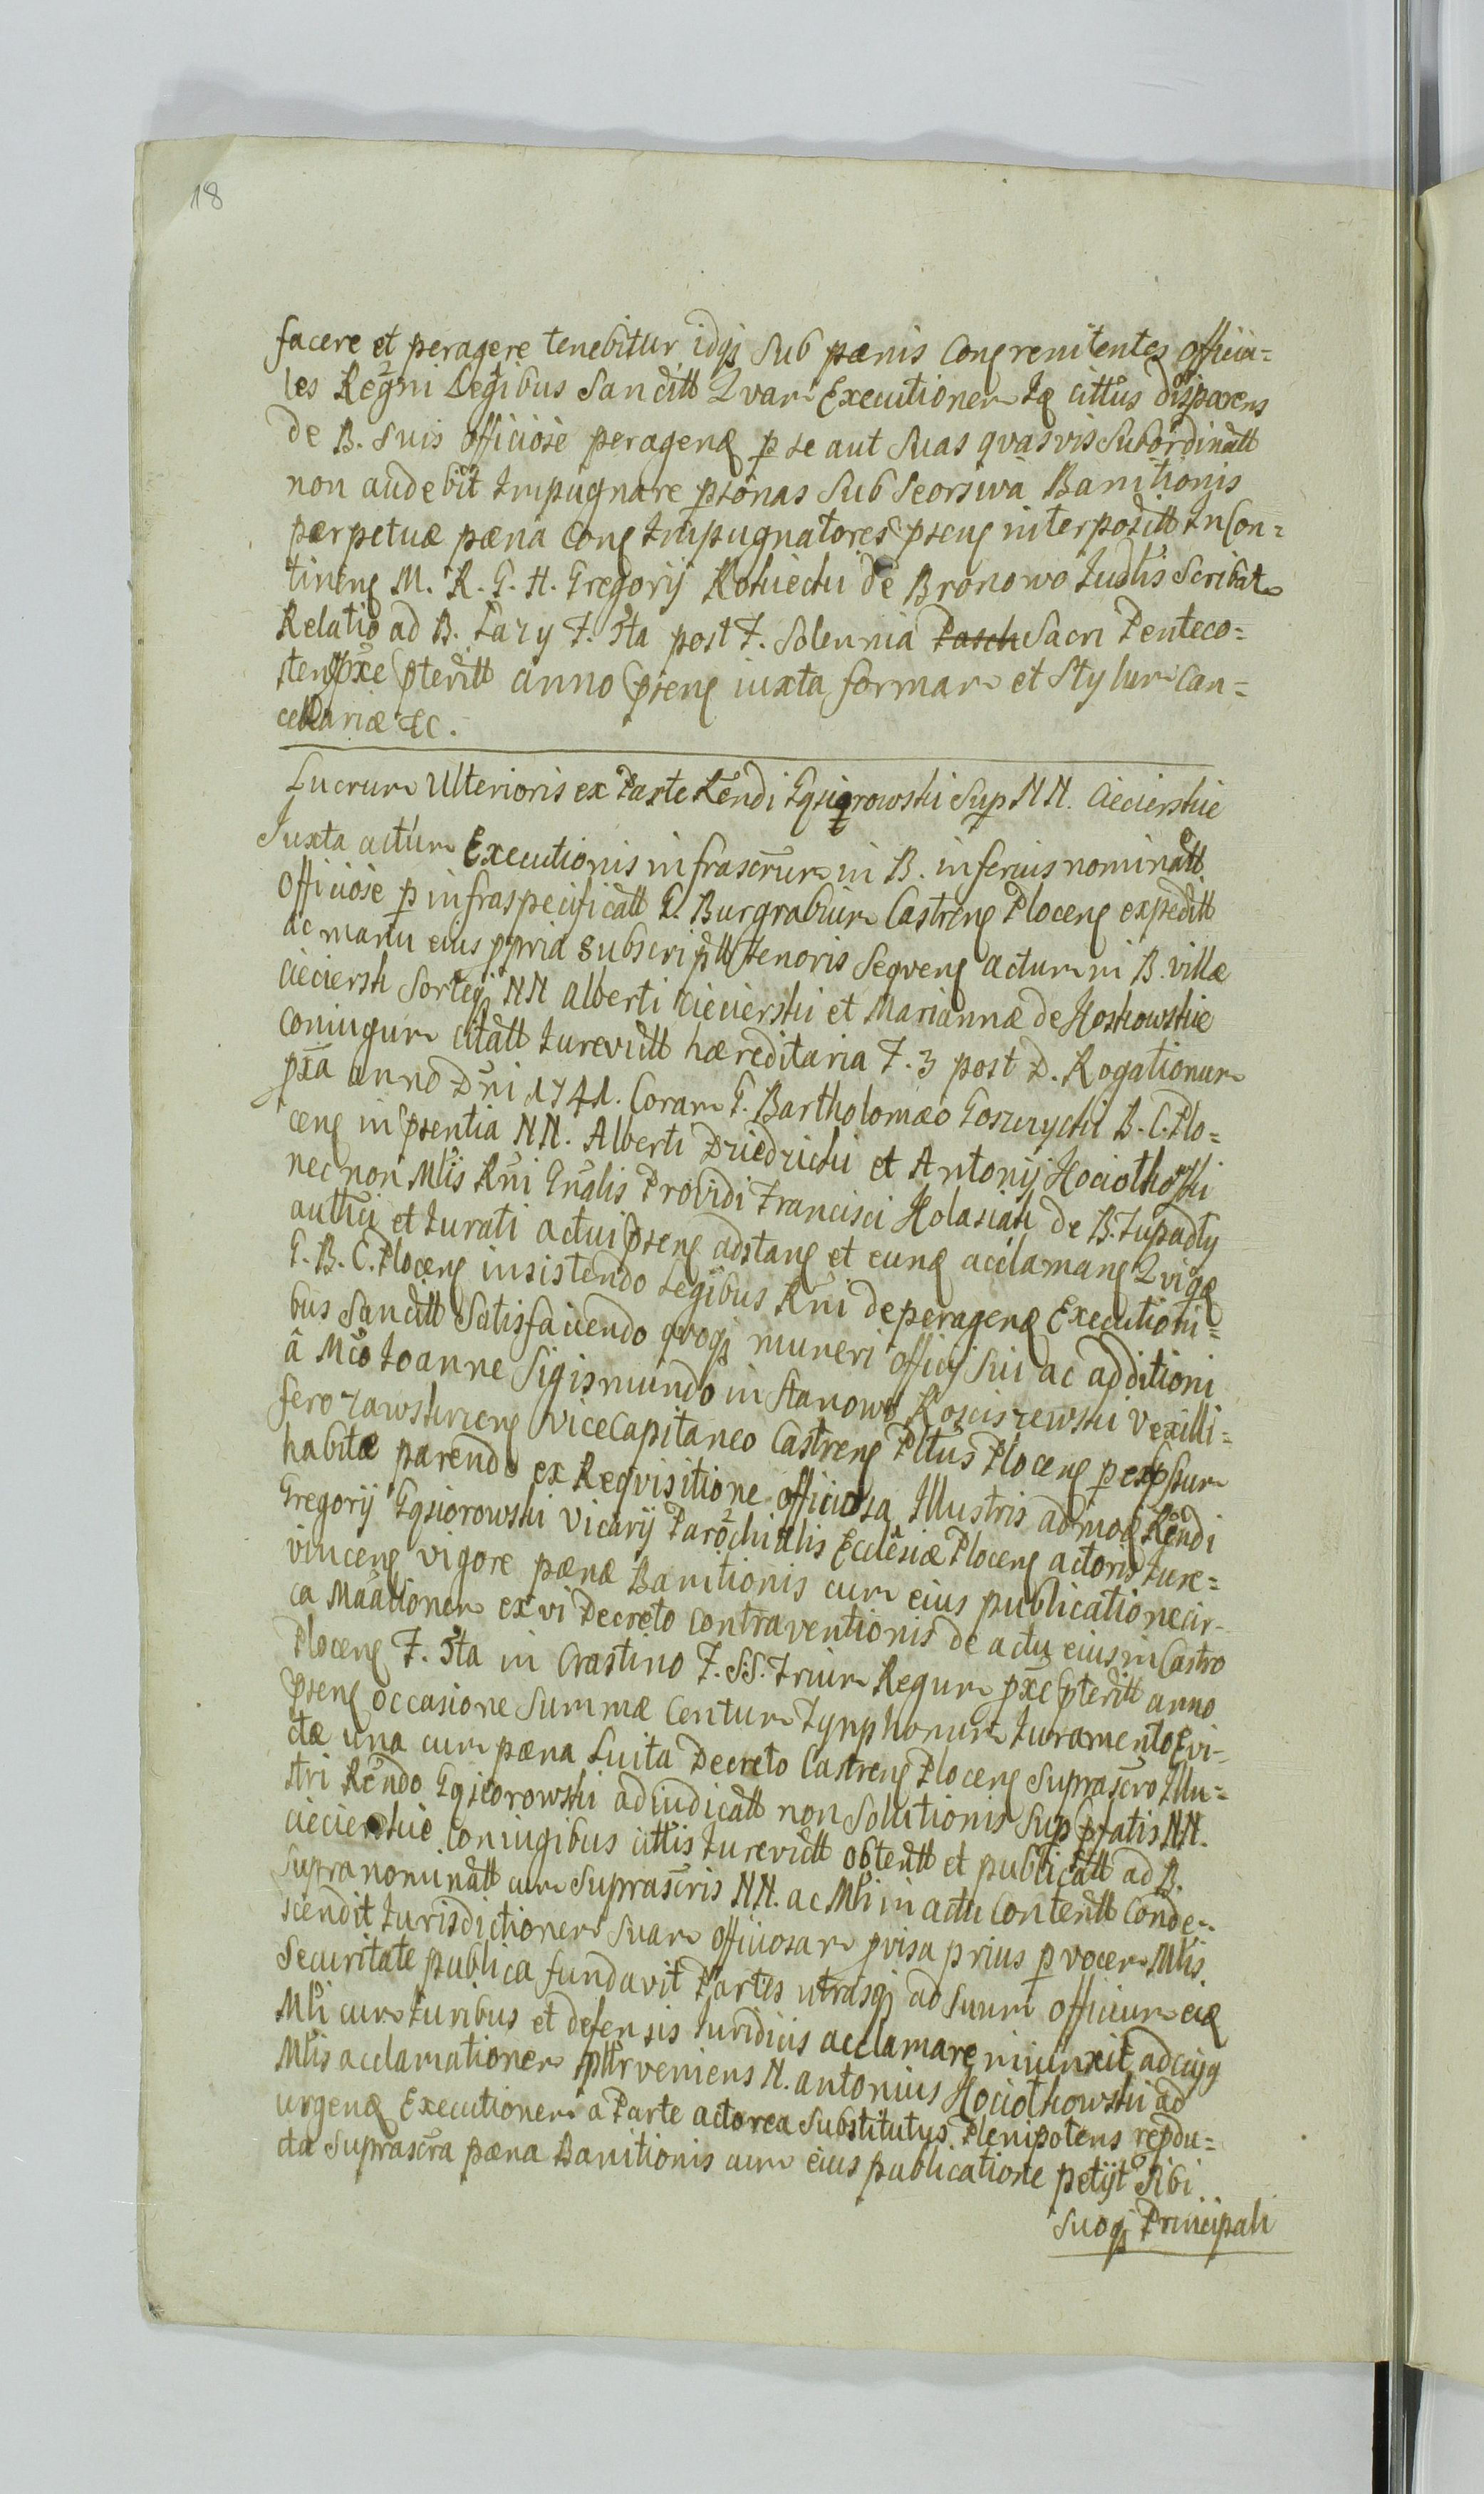 18
facere et peragere tenebitur idqꝫ Sub pænis Congrenitentes officia=
les Regni Legibus Sancitt Qvar Executioner Ie cittus disparens
de B. Suis officiose peragend p se aut Suas qvasvis Subordinatt
non audebit Impugnare psonas Sub Seorsiva Banitionis
pærpetuæ pæna Cong Impugnatores pseng interpositt In Con=
tineng M. R. G. H. Gregorij Rokicchi de Bronowo Iudlis Scribat
Relatio ad B. Lazy F. 5ta post F. Solennia Pasch Sacri Penteco=
sten pxe pteritt anno pseng iuxta formam et Stylum Can=
cellariæ &c.
Lucrum Ulterioris ex Parte Rendi Gąsiorowski Sup NN. Cieciershie
Iuxta actum Executionis infrascrum in B. inferius nominatt
officiose p infraspecificatt G. Burgrabium Castreng Ploceng expeditt
ac manu eius ppria Subscriptt tenoris Seqveng actum in B. villæ
Ciecierski Sorteqꝫ NN Alberti Ciecierski et Mariannæ de Koskowskie
Coniugum citatt Iurevictt hæreditaria F. 3 post D. Rogationum
pxa anno Dni 1741. Coram G. Bartholomæo Goszczycki B. C. Plo=
ceng in psentia NN. Alberti Dziedzicki et Antonij Kociotkowski
nec non Mlis Rni Gnalis Providi Francisci Kolasiak de B. Tupadly
authci et Iurati actui pseng adstang et eund acclamang Qvigd
G. B. C. Ploceng insistendo Legibus Rni de peragend Executioni=
bus Sancitt Satisfaciendo qvoqꝫ muneri officij Sui ac additioni
â Mco Ioanne Sigismundo in Stanowo Kosciszewski Vexilli=
fero Zawskrzeng ViceCapitaneo Castreng Pltus Ploceng p expssum
habitæ parendo ex Reqvisitione officiosa Illustris admod Rendi
Gregorij Gąsiorowski Vicarij Parochialis Ecclesiæ Ploceng actoris Iure=
vinceng vigore pænæ Banitionis cum eius publicatione cir=
ca Maationem ex vi Decreto Contraventionis de actu eius in Castro
Ploceng F. 5ta in Crastino F. S.S. Trium Regum pxe pteritt anno
pseng occasione Summæ Centum Tynphonum Iuramento Evi=
ctæ una cum pæna Luita Decreto Castreng Ploceng Suprascro Illu=
stri Rendo Gąsiorowski adiudicatt non Solutionis Sup pfatis NN.
Ciecierskie Coniugibus cittis Iurevictt obtentt et publicatt ad B.
Supra nominatt cum Suprascris NN. ac Mli in actu Contentt Conde=
scendit Iurisdictionem Suam officiosam pvisa prius p vocem Mlis
Securitate publica fundavit Partes utrasqꝫ ad Suum officium eid
Mli cum Iuribus et defensis Iuridicis acclamare iniunxit ad cujg
Mlis acclamationem veniens N. Antonius Kociotkowski ad
urgend Executionem a Parte actorea Substitutus Plenipotens repdu=
cta Suprascra pæna Banitionis cum eius publicatione petijt Sibi
Suoqꝫ Principali